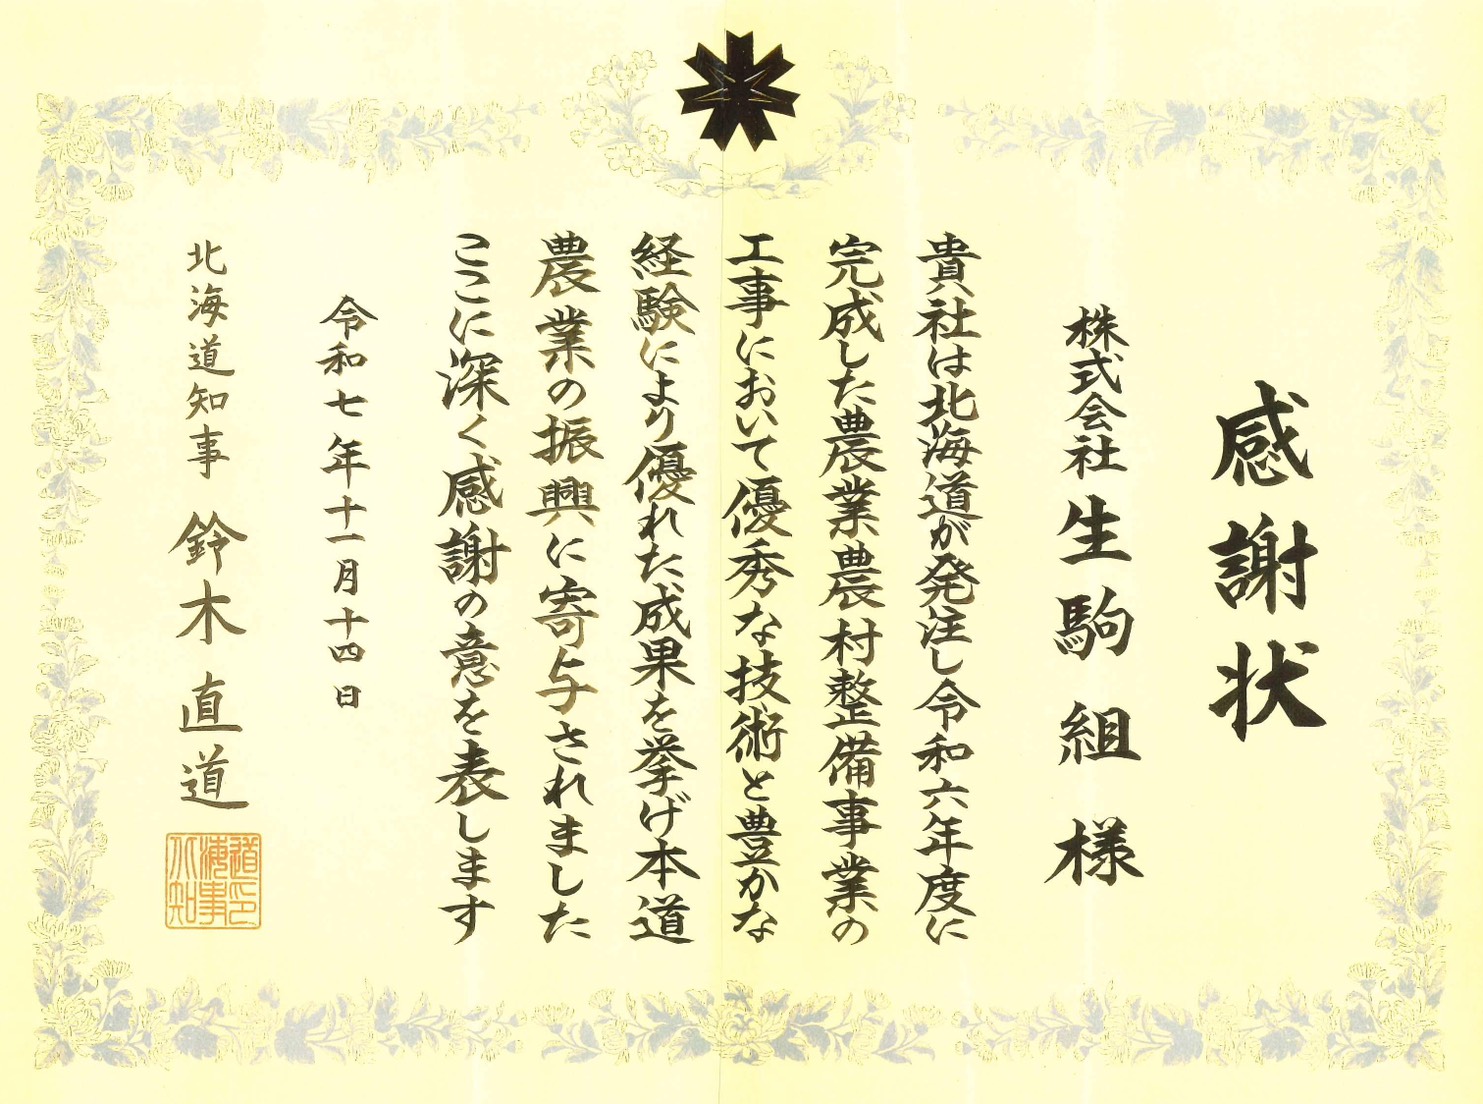 感謝状
株式会社生駒組様
貴社は北海道が発注し令和六年度に
完成した農業農村整備事業の
工事において優秀な技術と豊かな
経験により優れた成果を挙げ本道
農業の振興に寄与されました
ここに深く感謝の意を表します
令和七年十一月十四日
北海道知事 鈴木直道
道印
海事
北知